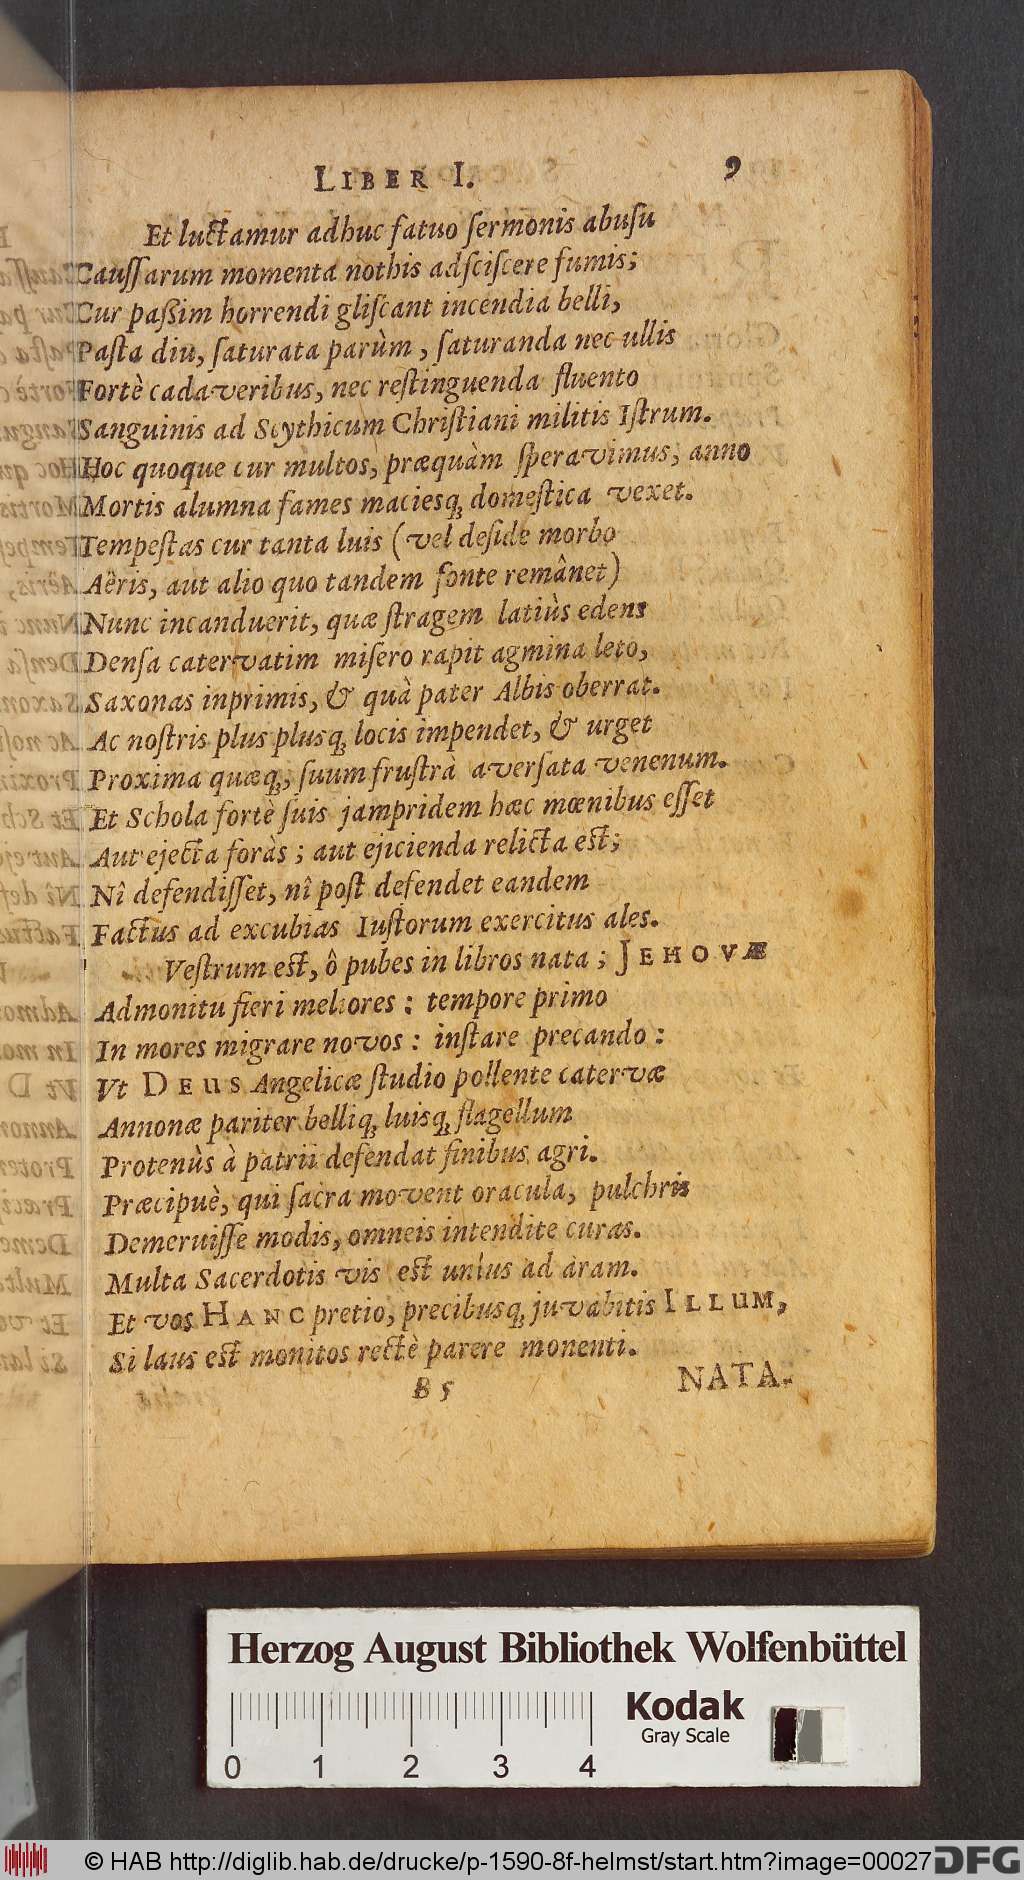 LIBER I. 9
Et luctamur adhuc fatuo ſermonis abuſu
Cauſſarum momenta nothis adſciſcere fumis;
Cur paßim horrendi gliſcant incendia belli,
Paſta diu, ſaturata parùm, ſaturanda nec ullis
Fortè cadaveribus, nec reſtinguenda fluento
Sanguinis ad Scythicum Chriſtiani militis Iſtrum.
Hoc quoque cur multos, præquàm ſperavimus, anno
Mortis alumna fames maciesq́; domeſtica vexet.
Tempeſtas cur tanta luis (vel deſide morbo
Aëris, aut alio quo tandem fonte remânet)
Nunc incanduerit, quæ ſtragem latiùs edens
Denſa catervatim miſero rapit agmina leto,
Saxonas inprimis, & quà pater Albis oberrat.
Ac noſtris plus plusq́; locis impendet, & urget
Proxima quæq́;, ſuum fruſtrà averſata venenum.
Et Schola fortè ſuis jampridem hæc mœnibus eſſet
Aut ejecta foràs; aut ejicienda relicta eſt;
Nî defendiſſet, nî poſt defendet eandem
Factus ad excubias Iuſtorum exercitus ales.
Veſtrum eſt, ô pubes in libros nata; JEHOVÆ
Admonitu fieri meliores: tempore primo
In mores migrare novos: inſtare precando:
Vt DEUS Angelicæ ſtudio pollente catervæ
Annonæ pariter belliq́; luisq́; flagellum
Protenùs à patrii defendat finibus agri.
Præcipuè, qui ſacra movent oracula, pulchris
Demeruiſſe modis, omneis intendite curas.
Multa Sacerdotis vis eſt unius ad aram.
Et vos HANC pretio, precibusq́; juvabitis ILLUM,
Si laus eſt monitos rectè parere monenti.
B 5 NATA.
Herzog August Bibliothek Wolfenbüttel
Kodak
Gray Scale
0 1 2 3 4
© HAB http://diglib.hab.de/drucke/p-1590-8f-helmst/start.htm?image=00027 DFG